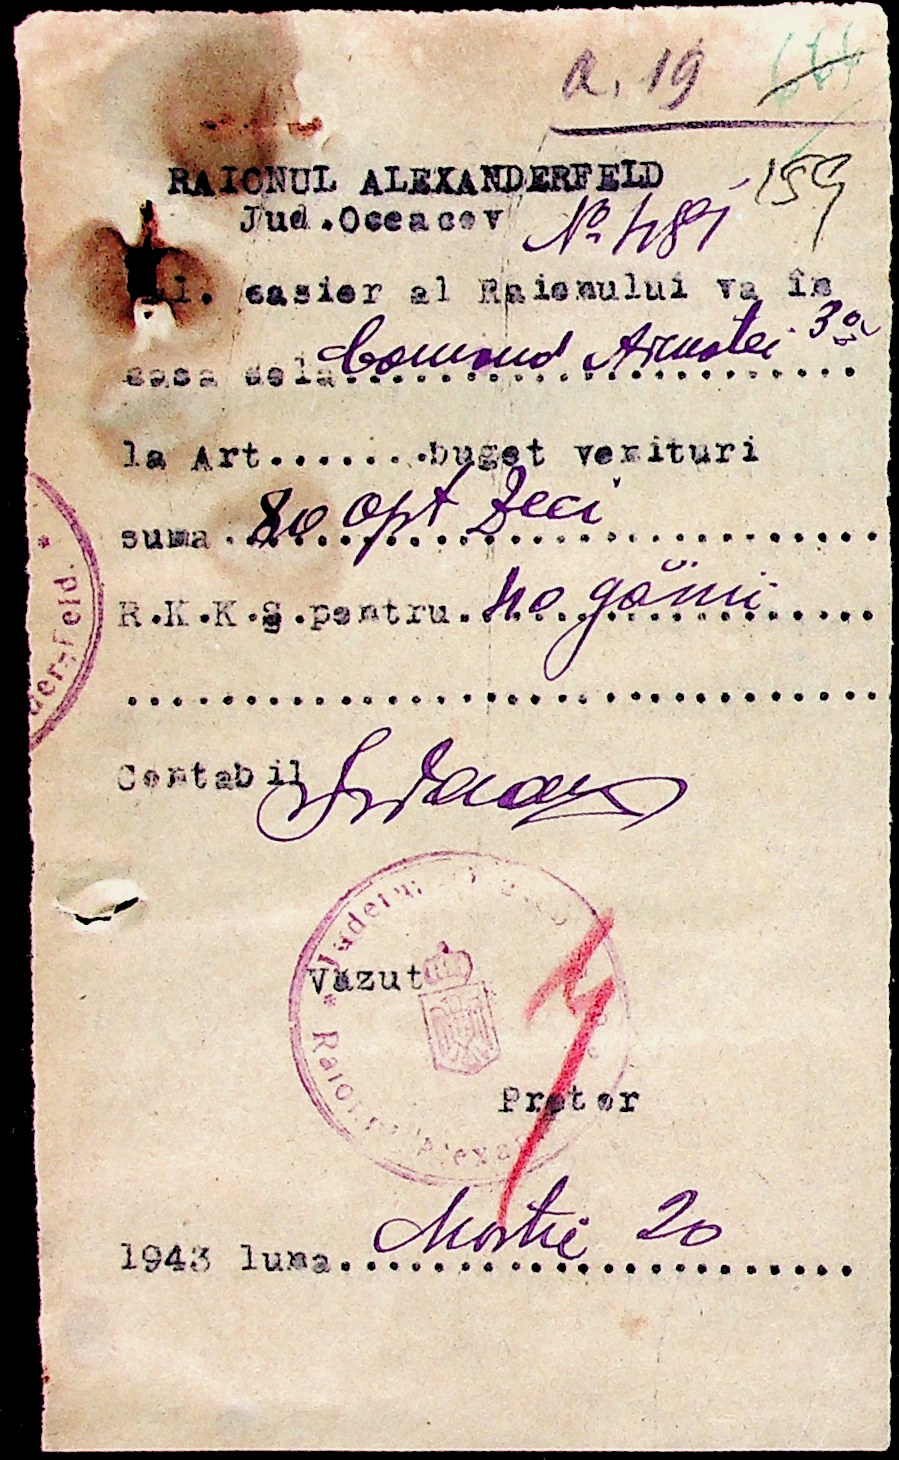 a. 19
159
RAIONUL ALEXANDERFELD
Jud.Oceacov
No 481
Dl. casier al Raionului va în
casa dela Comand Armatei 3a
la Art.......buget venituri
suma 80 opt Zeci
R.K.K.S.pentru 40 găini
....................................
Contabil
Vazut
Pretor
1943 luna Martie 20
der-Feld.
Județul
Raionul Alexa